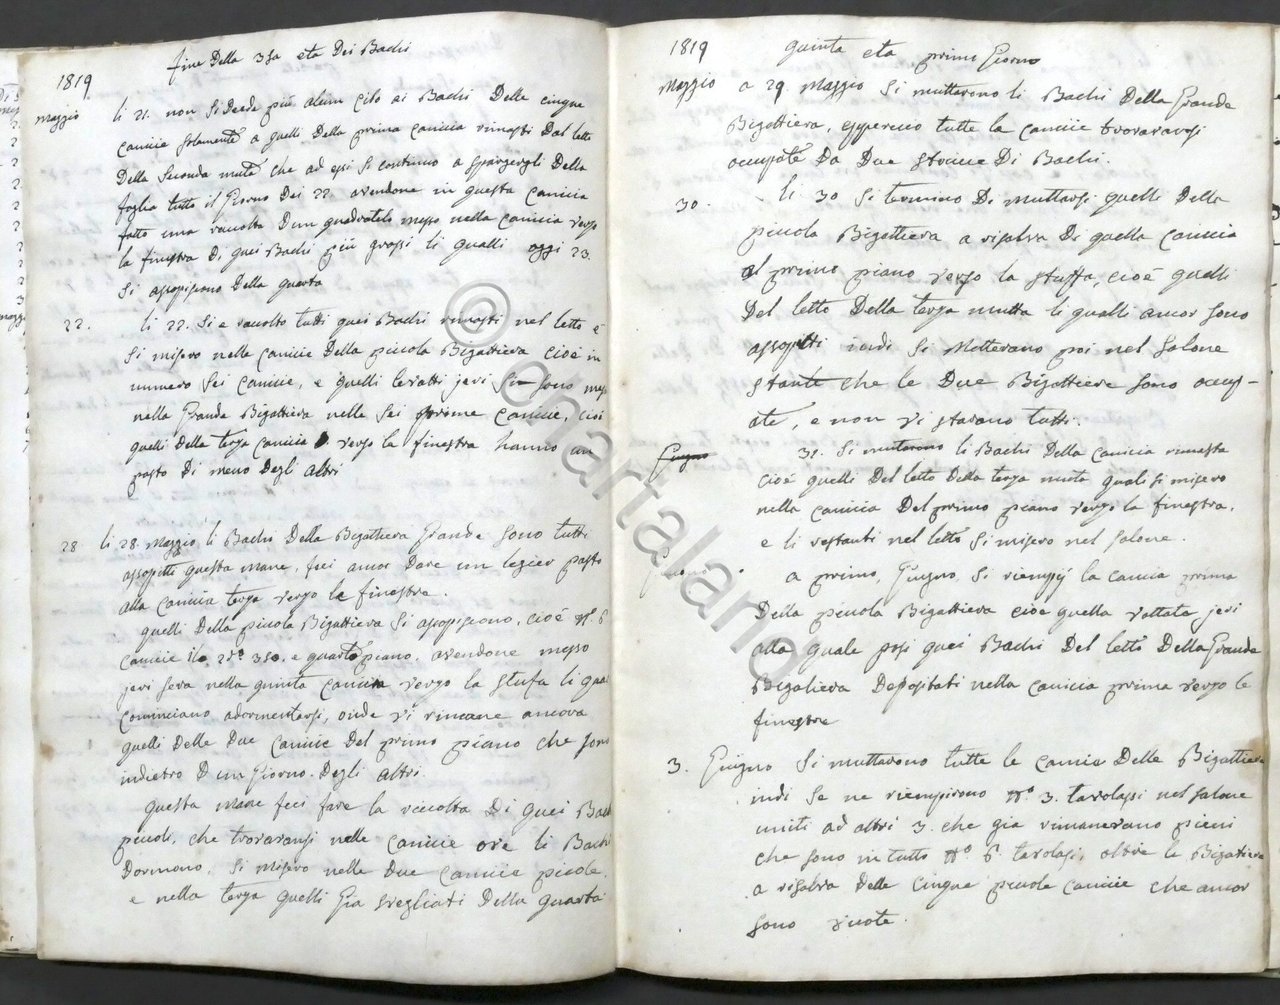 fine Della 3za età Dei Bachi
1819
Maggio
li 21. non si diede più alcun cibo ai Bachi Delle cinque
Camicie solamente a quelli Della prima camicia rimasti Dal letto
Della Seconda muta che ad essi si continuò a spargergli Della
foglia tutto il Giorno Dei 22. avendone in questa Camicia
fatto una raccolta D'un quadratelo messo nella Camicia verso
la finestra Di quei Bachi più grossi li qualli oggi 23.
Si assopiscono Della quarta
22.
li 22. Si è racolto tutti quei Bachi rimasti nel letto è
Si misero nelle Camicie Della piccola Bigattiera cioè in
numero Sei Camicie, e quelli levatti jeri sono
nella Grande Bigattiera nelle Sei prime Camicie, cioè
quelli Della terza Camicia verso la finestra hanno un
pasto Di meno Degli altri
28
li 28. Maggio li Bachi Della Bigattiera Grande sono tutti
assopitti questa mane, feci ancor Dare un legier pasto
alla Camicia terza verso le finestre.
quelli Della piccola Bigattiera Si assopiscono, cioè N.º 6
Camicie 2do 3zo. e quarto piano, avendone messo
jeri sera nella quinta Camicia verso la Stufa li quali
Cominciano adormentarsi, onde vi rimane ancora
quelli Delle Due Camicie Del primo piano che sono
indietro D'un Giorno Degli altri.
questa mane feci fare la raccolta Di quei Bachi
piccoli, che trovavansi nelle Camicie ove li Bachi
Dormono, Si misero nelle Due Camicie picole,
e nella terza quelli Già svegliati Della quarta
1819
quinta età primo Giorno
Maggio
a 29. Maggio Si muttarono li Bachi Della Grande
Bigattiera, eppercio tutte la camicie trovaravasi
occupate Da Due straccie Di Bachi.
30.
li 30 Si termino Di muttarsi quelli Della
piccola Bigattiera a risalva Di quella Camicia
al primo piano verso la stuffa, cioè quelli
Del letto Della terza mutta li qualli ancor sono
assopitti indi Si Metterano poi nel Salone
stante che le Due Bigattiere sono occup-
ate, e non vi stavano tutti.
Giugno
31. Si mutarono li Bachi Della Camicia rimasta
cioè quelli Del letto Della terza muta quali si misero
nella camicia Del primo piano verso la finestra,
e li restanti nel letto Si misero nel Salone.
Giugno
a primo Giugno Si riempij la camicia prima
Della piccola Bigattiera cioè quella vottata jeri
alla quale posi quei Bachi Del letto Della Grande
Bigatiera Depositati nella camicia prima verso le
finestre
3.
Giugno Si muttarono tutte le camicie Delle Bigattiere
indi Se ne riempirono N.º 3. tavolassi nel salone
uniti ad altri 3. che già rimanevano pieni
che sono in tutto N.º 6 tavolassi, oltre le Bigattiere
a risalva Delle Cinque piccole Camicie che ancor
sono vuote.
© chartaland